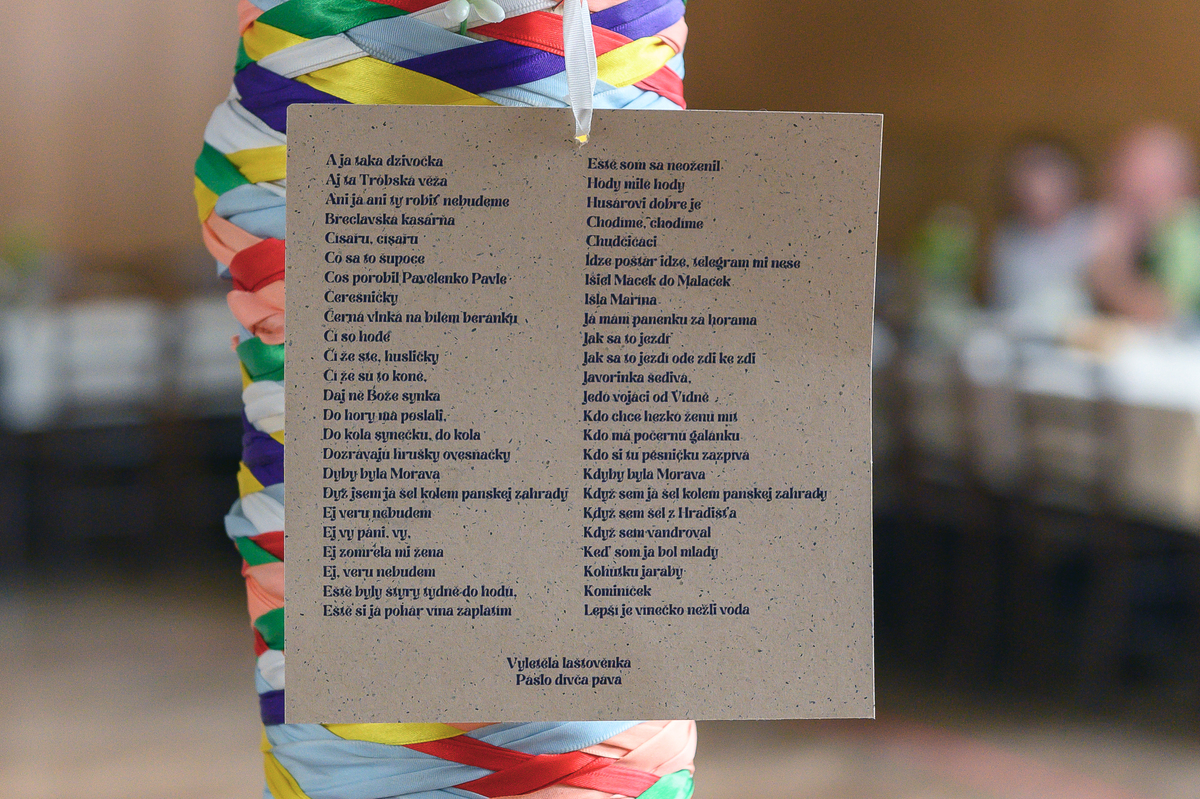 A ja taka dzivočka
Aj ta Trobská věža
Ani já ani ty robiť nebudeme
Breclavská kasárňa
Císařu, císařu
Co sa to šupoce
Cos porobil Pavelenko Pavle
Čerešničky
Černá vlnká na bílém beránku
Či so hodě
Či že ste, husličky
Či že su to koně,
Daj ně Bože synka
Do hory ma poslali,
Do kola synečku, do kola
Dozrávajú hrušky ovesňáčky
Dyby byla Morava
Dyž jsem já šel kolem panskej zahrady
Ej veru nebudem
Ej vy páni, vy,
Ej zomřela mi žena
Ej, veru nebudem
Eště byly štyry týdně do hodů,
Eště si já pohár vína zaplatím
Eště som sa neoženil
Hody milé hody
Husárovi dobre je
Chodíme, chodíme
Chudčičáci
Idze poštár idze, telegram mi nese
Išiel Macek do Malacek
Išla Marina
Já mám panenku za horama
Jak sa to jezdí
Jak sa to jezdí ode zdi ke zdi
Javorinka šedivá,
Jedo vojáci od Vídně
Kdo chce hezkó ženu mít
Kdo má počernú galánku
Kdo si tu pěsničku zazpívá
Kdyby byla Morava
Když sem já šel kolem panskej zahrady
Když sem šel z Hradišťa
Když sem vandroval
Keď som ja bol mladý
Kohútku jarabý
Kominíček
Lepší je vínečko nežli voda
Vyletěla laštověnka
Páslo děvča páva